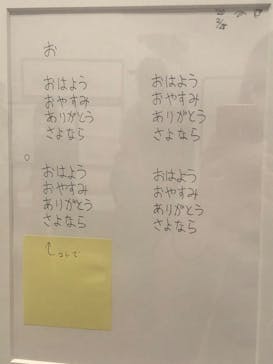 お
おはよう
おやすみ
ありがとう
さよなら
おはよう
おやすみ
ありがとう
さよなら
おはよう
おやすみ
ありがとう
さよなら
おはよう
おやすみ
ありがとう
さよなら